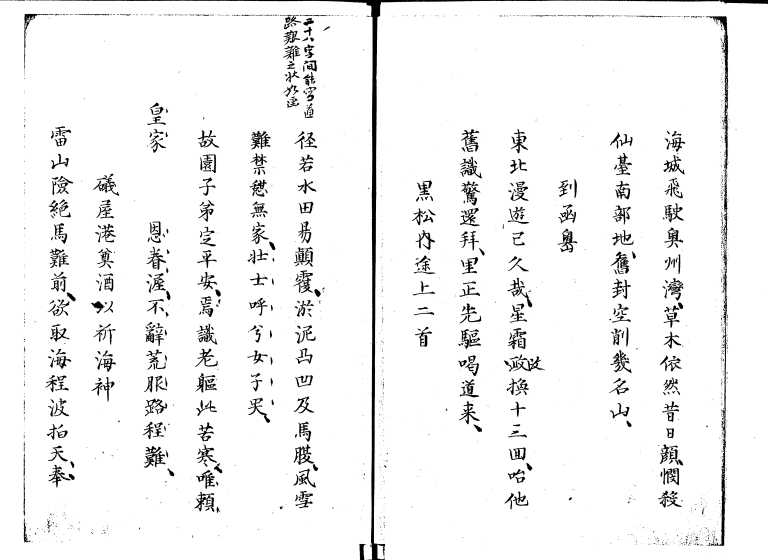 海城飛駛奥州灣、草木依然昔日顔、憫殺
仙臺南部地、舊封空削幾名山、
到函舘
東北漫遊已久哉、星霜改換十三回、咍他
舊識驚還拜、里正先驅喝道来、
黒松内途上二首
二十八字間能写道
路艱難之状
径若水田易顛覆、淤泥凸凹及馬腹、風雪
難禁愁無家、壮士呼兮女子哭、
故園子弟定平安、焉識老軀此苦寒、唯頼
皇家　恩眷渥、不辭荒服路程難、
礒屋港奠酒以祈海神
雷山險絶馬難前、欲取海程波拍天、奉